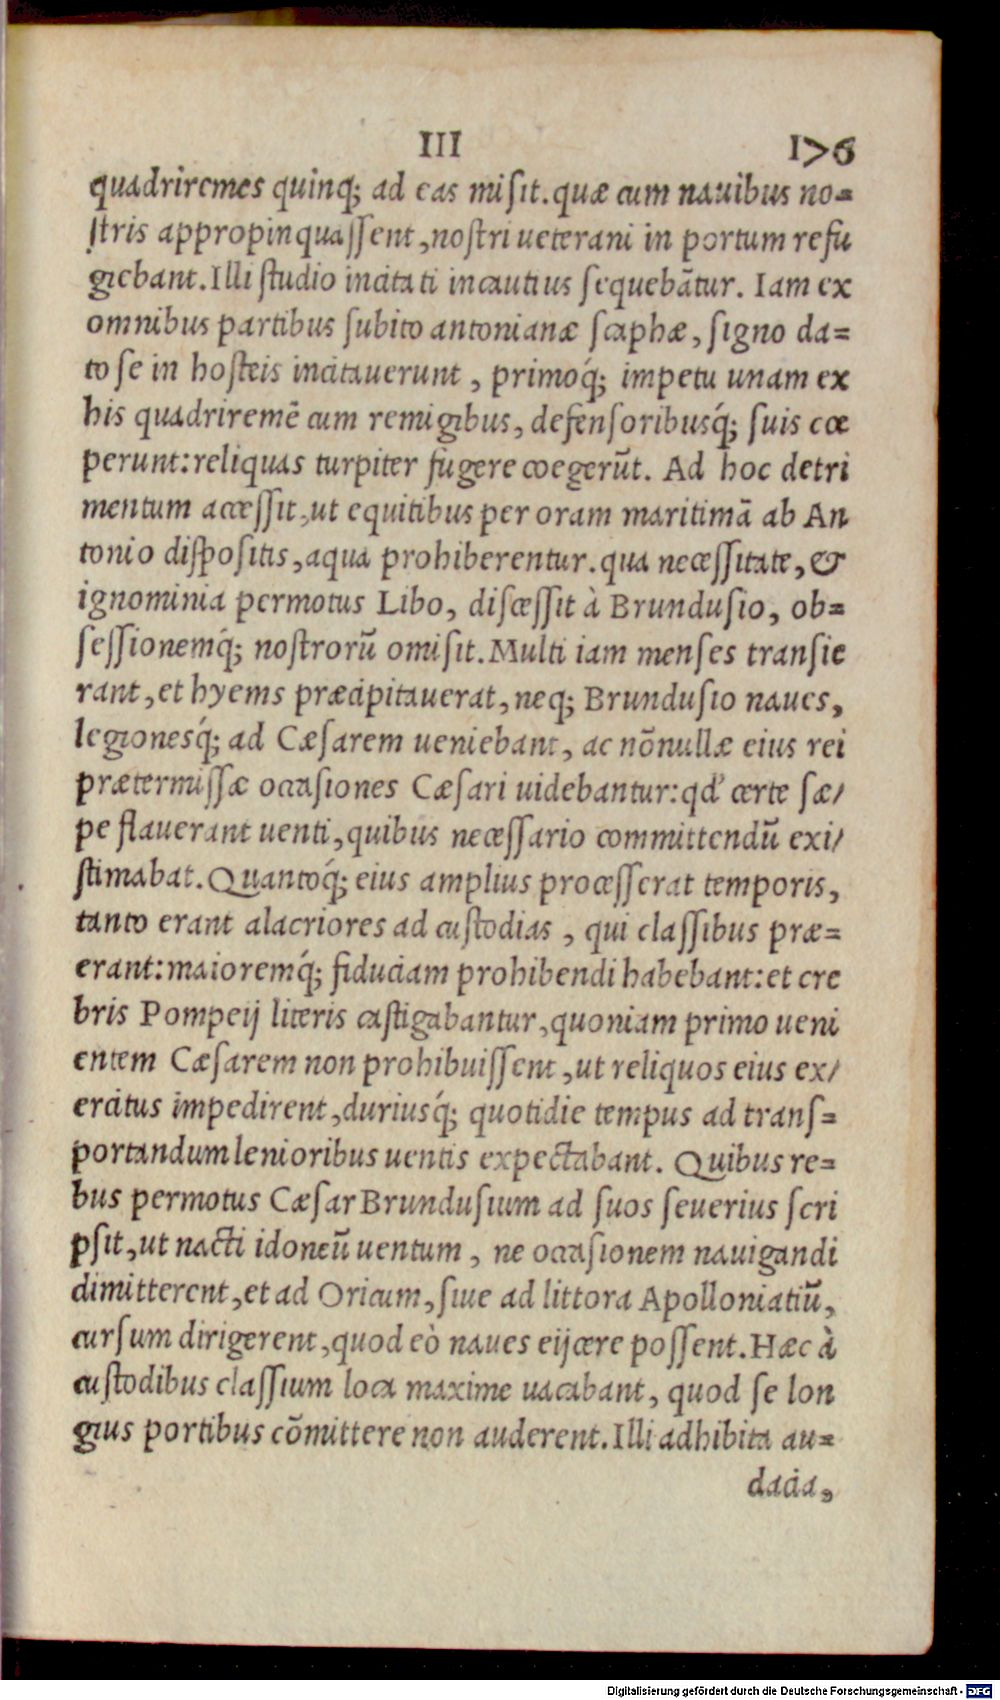 III 176
quadriremes quinq; ad eas misit. quæ cum nauibus no=
stris appropinquassent, nostri ueterani in portum refu
giebant. Illi studio incitati incautius sequebãtur. Iam ex
omnibus partibus subito antonianæ scaphæ, signo da=
to se in hosteis incitauerunt, primoq́; impetu unam ex
his quadriremẽ cum remigibus, defensoribusq́; suis cœ
perunt: reliquas turpiter fugere coegerũt. Ad hoc detri
mentum accessit, ut equitibus per oram maritimã ab An
tonio dispositis, aqua prohiberentur. qua necessitate, &
ignominia permotus Libo, discessit à Brundusio, ob=
sessionemq́; nostrorũ omisit. Multi iam menses transie
rant, et hyems præcipitauerat, neq; Brundusio naues,
legionesq́; ad Cæsarem ueniebant, ac nõnullæ eius rei
prætermissæ occasiones Cæsari uidebantur: qd' certe sæ/
pe flauerant uenti, quibus necessario committendũ exi/
stimabat. Quantoq́; eius amplius processerat temporis,
tanto erant alacriores ad custodias, qui classibus præ=
erant: maioremq́; fiduciam prohibendi habebant: et cre
bris Pompeij literis castigabantur, quoniam primo ueni
entem Cæsarem non prohibuissent, ut reliquos eius ex/
ercitus impedirent, duriusq́; quotidie tempus ad trans=
portandum lenioribus uentis expectabant. Quibus re=
bus permotus Cæsar Brundusium ad suos seuerius scri
psit, ut nacti idoneũ uentum, ne occasionem nauigandi
dimitterent, et ad Oricum, siue ad littora Apolloniatiũ,
cursum dirigerent, quod eò naues eijcere possent. Hæc à
custodibus classium loca maxime uacabant, quod se lon
gius portibus cõmittere non auderent. Illi adhibita au=
dacia,
Digitalisierung gefördert durch die Deutsche Forschungsgemeinschaft - DFG